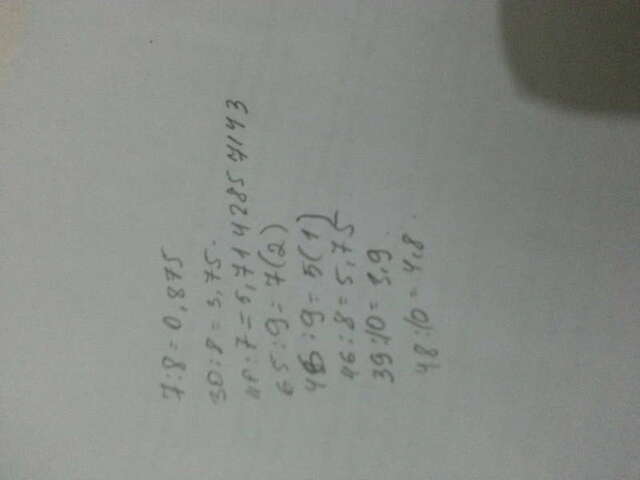 7:8=0,875
30:8=3,75.
40:7=5,7142857143
65:9=7(2)
46:9=5(1)
46:8=5,75
39:10=3,9.
48:10=4,8.